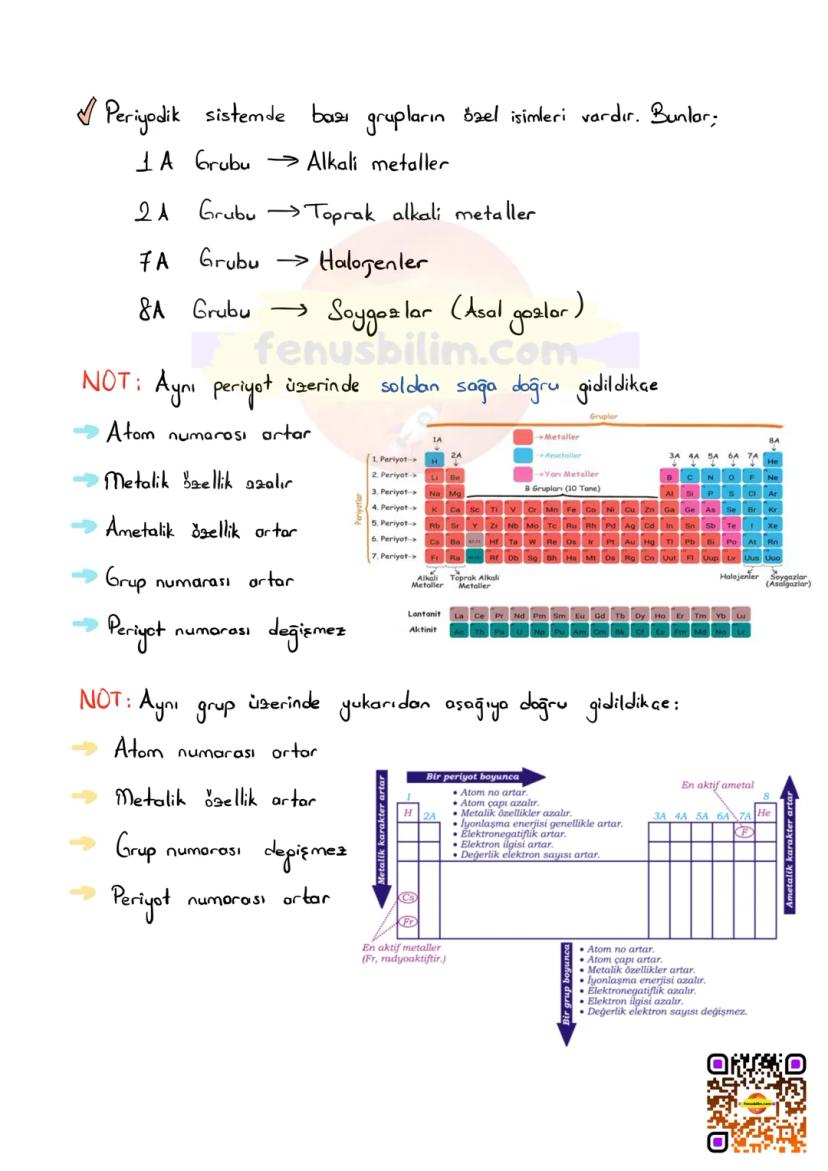 Periyodik sistemde bazı grupların özel isimleri vardır. Bunlar;
1A Grubu → Alkali metaller
2A Grubu → Toprak alkali metaller
7A Grubu → Halojenler
8A Grubu → Soygazlar (Asal gazlar)
fenusbilim.com
NOT: Aynı periyot üzerinde soldan sağa doğru gidildikçe
Atom numarası artar
Metalik özellik azalır
Ametalik özellik artar
Grup numarası artar
Periyot numarası değişmez
Gruplar
1A
8A
→Metaller
→Ametaller
→Yarı Metaller
2A
3A 4A 5A 6A 7A
B Grupları (10 Tane)
Periyotlar
1. Periyot→ H He
2. Periyot→ Li Be B C N O F Ne
3. Periyot→ Na Mg Al Si P S Cl Ar
4. Periyot→ K Ca Sc Ti V Cr Mn Fe Co Ni Cu Zn Ga Ge As Se Br Kr
5. Periyot→ Rb Sr Y Zr Nb Mo Tc Ru Rh Pd Ag Cd In Sn Sb Te I Xe
6. Periyot→ Cs Ba Hf Ta W Re Os Ir Pt Au Hg Tl Pb Bi Po At Rn
7. Periyot→ Fr Ra Rf Db Sg Bh Hs Mt Ds Rg Cn Uut Fl Uup Lv Uus Uuo
Alkali Metaller
Toprak Alkali Metaller
Halojenler
Soygazlar (Asalgazlar)
Lantanit La Ce Pr Nd Pm Sm Eu Gd Tb Dy Ho Er Tm Yb Lu
Aktinit Ac Th Pa U Np Pu Am Cm Bk Cf Es Fm Md No Lr
NOT: Aynı grup üzerinde yukarıdan aşağıya doğru gidildikçe:
Atom numarası artar
Metalik özellik artar
Grup numarası değişmez
Periyot numarası artar
Metalik karakter artar
Bir periyot boyunca
• Atom no artar.
• Atom çapı azalır.
• Metalik özellikler azalır.
• İyonlaşma enerjisi genellikle artar.
• Elektronegatiflik artar.
• Elektron ilgisi artar.
• Değerlik elektron sayısı artar.
En aktif ametal
1
8
H
He
2A
3A 4A 5A 6A 7A
F
Cs
Fr
Ametalik karakter artar
En aktif metaller
(Fr, radyoaktiftir.)
Bir grup boyunca
• Atom no artar.
• Atom çapı artar.
• Metalik özellikler artar.
• İyonlaşma enerjisi azalır.
• Elektronegatiflik azalır.
• Elektron ilgisi azalır.
• Değerlik elektron sayısı değişmez.
fenusbilim.com